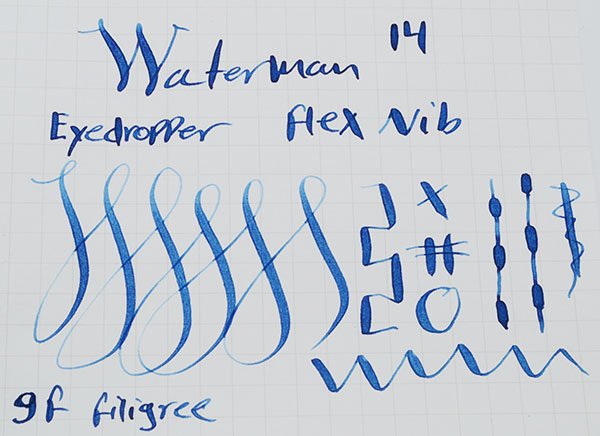 Waterman 14
Eyedropper flex Nib
gf filigree